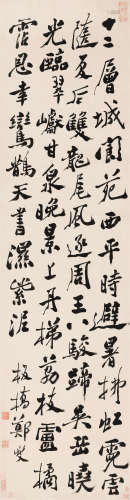 十二層城閬苑西平時避暑拂虹霓雲
隨夏后雙龍尾風逐周王八駿蹄吳岳曉
光臨翠巘甘泉晚景上丹梯荔枝盧橘
霑恩幸鸞鵲天書濕紫泥
板橋鄭燮